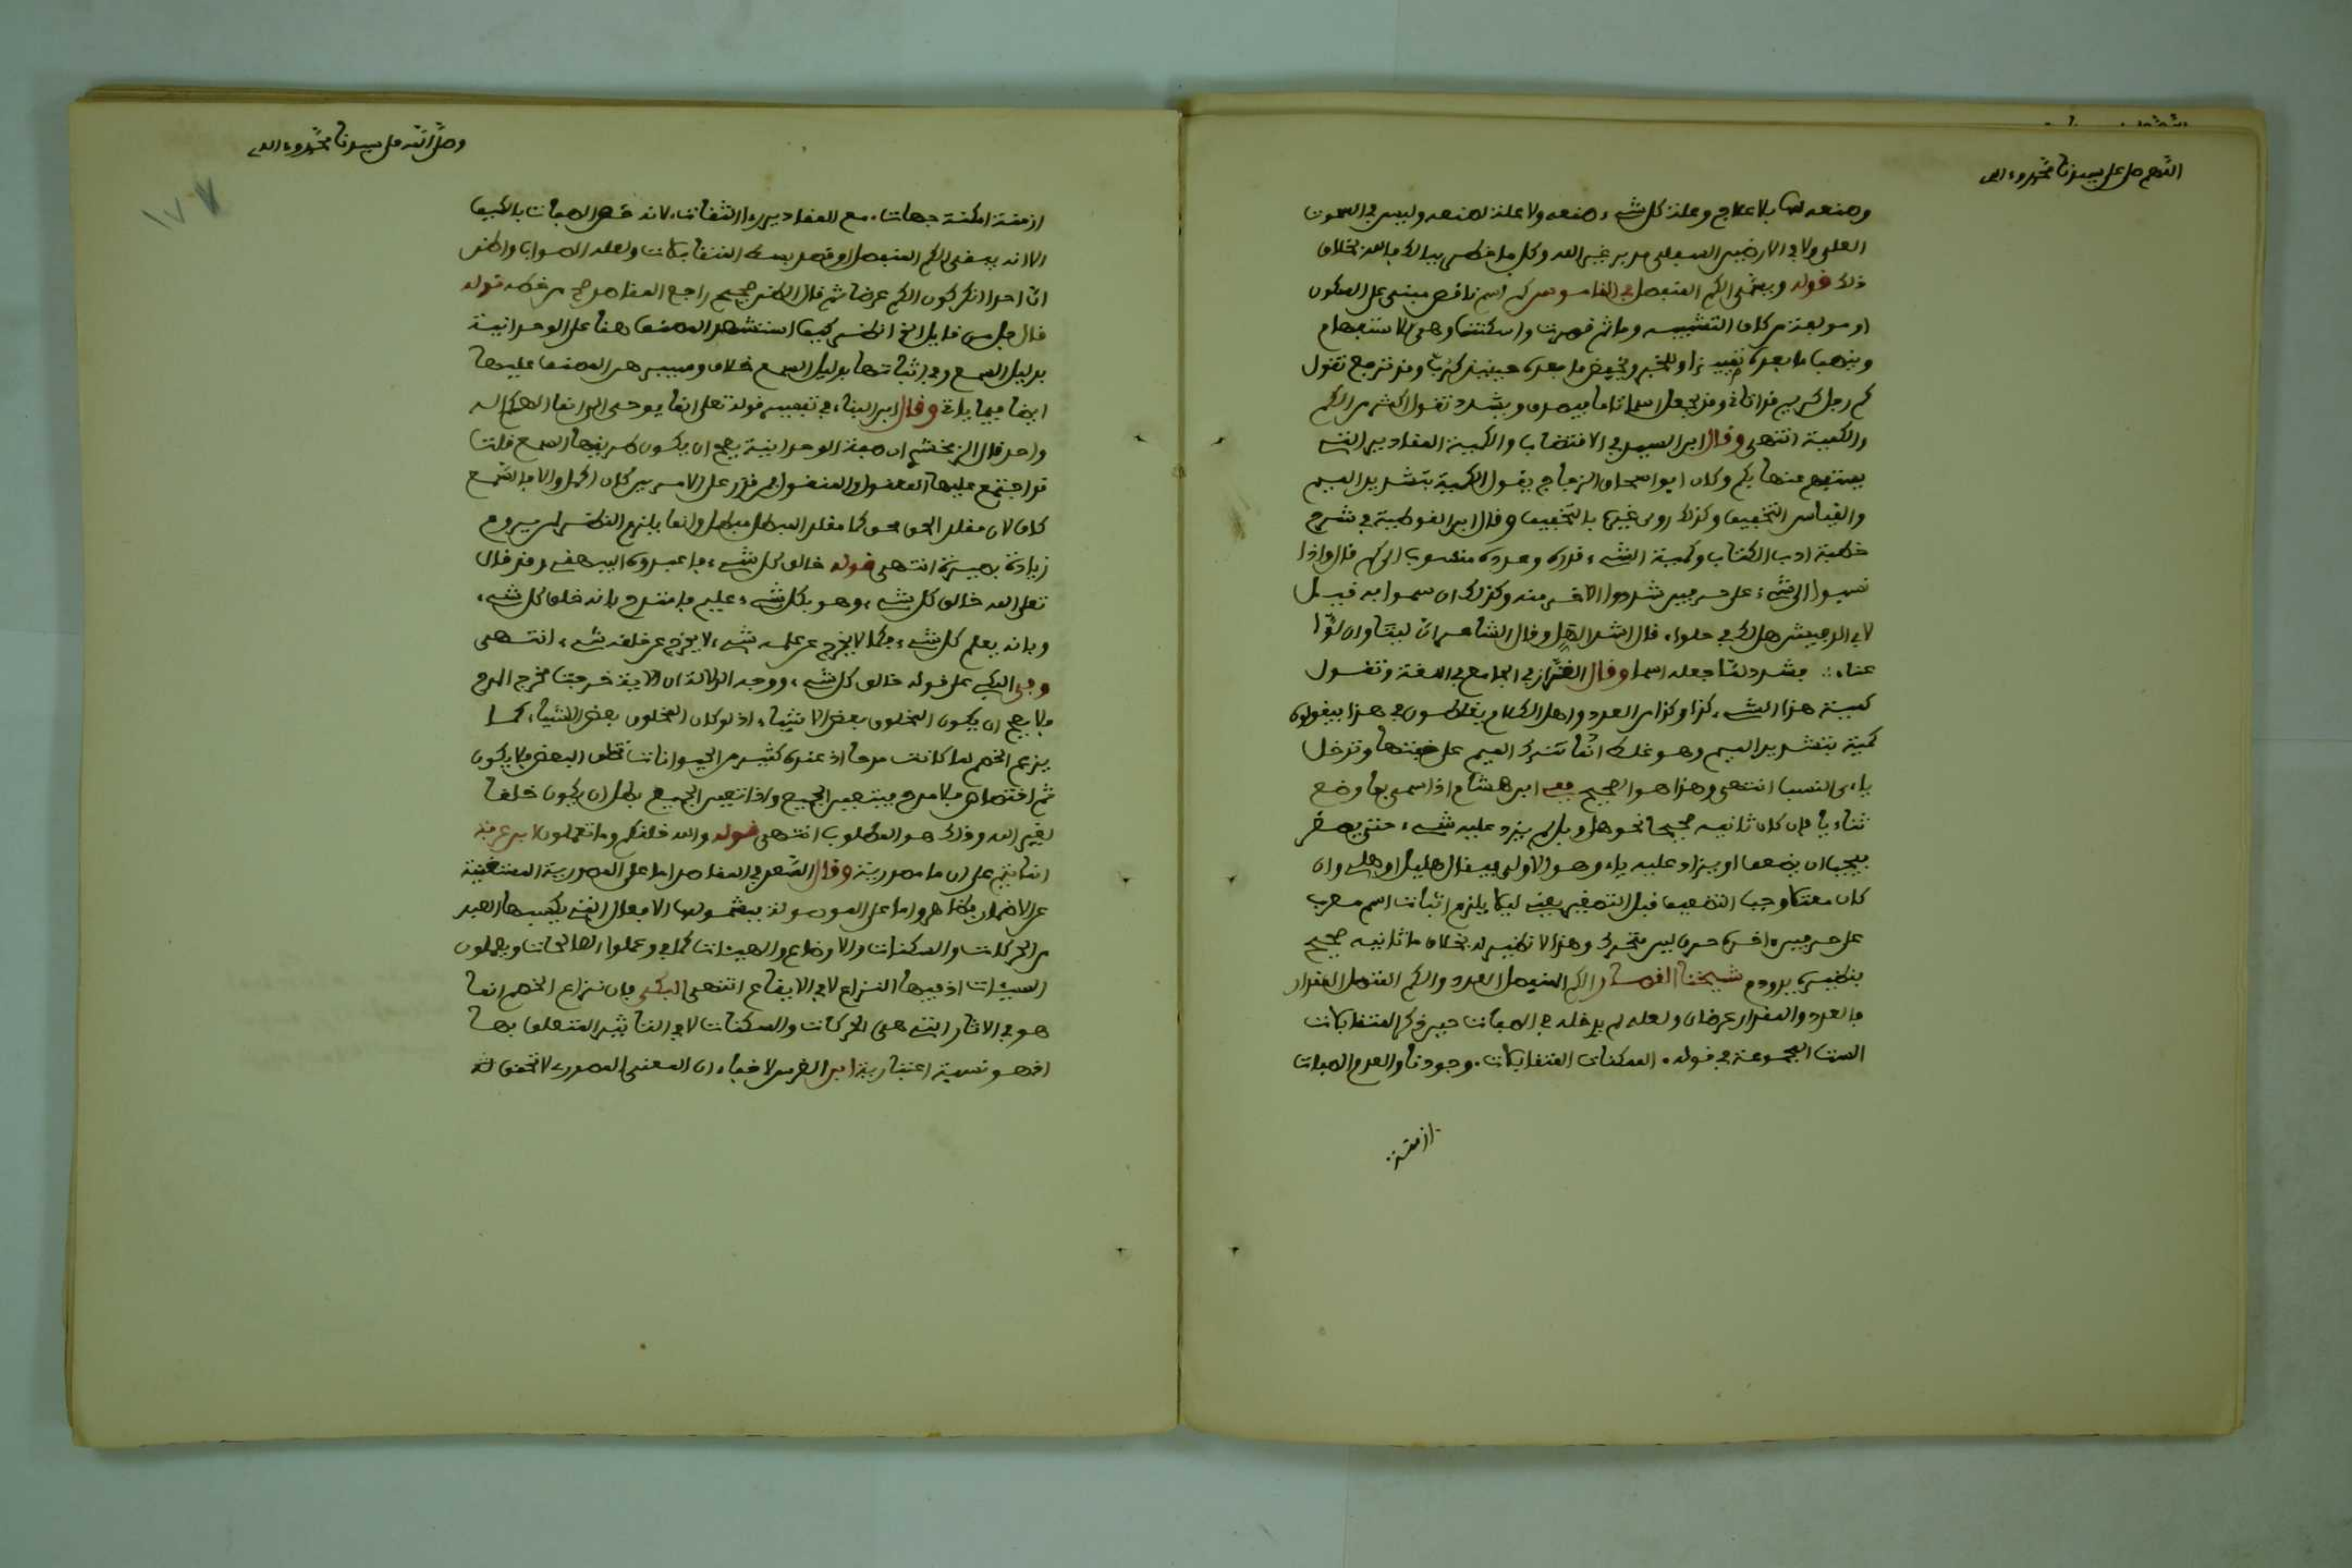 اللهم صل على سيدنا محمد وءاله
وصنعه لها بلا علاج وعلة كل شيء صنعه ولا علة لصنعه وليس في السموت
العلى ولا في الارضين السفلى مدبر غير الله وكل ما خطر ببالك فالله بخلاف
ذلك قوله وينفى الكم المنفصل في القاموس كم اسم ناقص مبني على السكون
او مولفة من كاف التشبيه وما ثم قصرت واسكنت وهي للاستفهام
وينصب ما بعده تمييزا وللخبر ويخفض ما بعده حينئذ كرب وقد ترفع تقول
كم رجل كريم قد اتاني وقد يجعل اسما تاما فيصرف ويشدد تقول اكثر من الكم
والكمية انتهى وقال ابن السيد في الاقتضاب والكمية المقادير التي
يستفهم عنها بكم وكان ابو اسحاق الزجاج يقول الكمية بتشديد الميم
والقياس التخفيف وكذلك روى غيره بالتخفيف وقال ابن القوطية في شرح
خطبة ادب الكتاب وكمية الشيء قدره وعدده منسوب الى كم قال واذا
نسبوا الى شيء على حرفين شددوا الاخر منه وكذلك ان سموا به قيل
لابي الدقيش هل لك في حلواء قال اشد الهل وقال الشاعر ان ليتا وان لوا
عناء فشدد لما جعله اسما وقال القزاز في الجامع في اللغة وتقول
كمية هذا الشيء كذا وكذا من العدد واهل الكلام يغلطون في هذا فيقولون
كمية بتشديد الميم وهو غلط انما تترك الميم على خفتها وتدخل
ياءي النسب انتهى وهذا هو الصحيح ففي ابن هشام اذا سمي بما وضع
ثنائيا فان كان ثانيه صحيحا نحو هل وبل لم يزد عليه شيء حتى يصغر
فيجب ان يضعف او يزاد عليه ياء وهو الاولى فيقال هليل او هلي وان
كان معتلا وجب التضعيف قبل التصغير يعني ليلا يلزم اثبات اسم معرب
على حرفين اخره حرف لين متحرك وهذا لا نظير له بخلاف ما ثانيه صحيح
بنظيره يد ودم شيخنا القصار الكم المنفصل العدد والكم المتصل المقدار
فالعدد والمقدار عرضان ولعله لم يدخله في الصفات حين ذكر المتقابلات
الست المجموعة في قوله الممكنات المتقابلات وجودنا والعدم الصفات
ازمنة
وصلى الله على سيدنا محمد وءاله
١٧٧
ازمنة امكنة جهات مع المقادير روى الثقات لانه فسر الصفات بالكيف
الا انه ينفى الكم المنفصل او قصد بسط المتقابلات ولعله الصواب واظن
ان احدا انكر كون الكم عرضا ثم قال الامر صحيح راجع المقاصد صح من خطه قوله
قال جل من قايل الخ انظر كيف استشهد المصنف هنا على الوحدانية
بدليل السمع وفي اثباتها بدليل السمع خلاف وسيبين هر المصنف عليها
ايضا فيما ياتي وقال ابن البناء في تفسير قوله تعلى انما يوحى الي انما الهكم اله
واحد قال الزمخشري ان صفة الوحدانية يصح ان يكون طريقها السمع قلت
قد اجتمع عليها المعقول والمنقول فمن قدر على الامرين كان اكمل والا فالسمع
كاف لان مقلد الحق محق كما مقلد المبطل مبطل وانما يلزم النظر لمن يروم
زيادة بصيرة انتهى قوله خالق كل شيء فاعبدوه البيهقي وقد قال
تعلى الله خالق كل شيء وهو بكل شيء عليم فامتدح بانه خلق كل شيء
وبانه يعلم كل شيء فكما لا يخرج عن علمه شيء لا يخرج عن خلقه شيء انتهى
وفي البكي على قوله خالق كل شيء ووجه الدلالة ان الاية خرجت مخرج المدح
فلا يصح ان يكون المخلوق بعض الاشياء اذ لو كان المخلوق بعض الاشياء كما
يزعم الخصم لما كانت مدحا اذ عنده كثير من الحيوانات تخلق البعض فلا يكون
ثم اختصاص فلا مدح فيتعين الجميع واذا تعين الجميع بطل ان يكون خلقا
لغير الله وذلك هو المطلوب انتهى قوله والله خلقكم وما تعملون ابن عرفة
انما يتم على ان ما مصدرية وقال السعد في المقاصد اما على المصدرية المستغنية
عن الاضمار فظاهر واما على الموصولة فبشمولها الافعال التي يكسبها العبد
من الحركات والسكنات والاوضاع والهيئات كما في وعملوا الصالحات ويعملون
السيئات اذ فيها النزاع لا في الايقاع انتهى البكي فان نزاع الخصم انما
هو في الاثار التي هي الحركات والسكنات لا في التاثير المتعلق بها
اذ هو نسبة اعتبارية ابن الغرس لا خفاء ان المعنى المصدري لا تحقق له